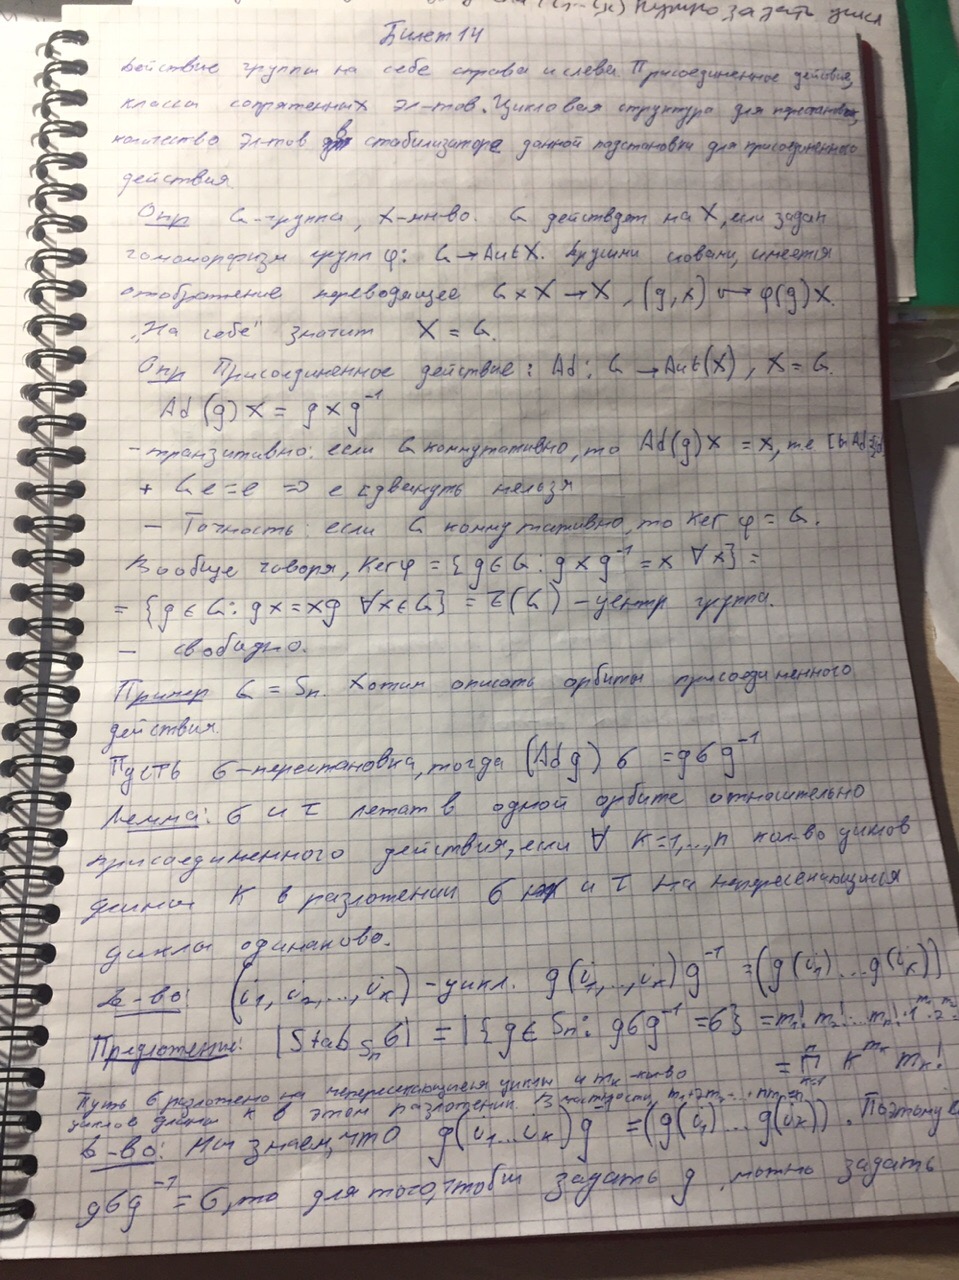 нужно задать цикл
Билет 14
Действие группы на себе справа и слева. Присоединенное действие,
классы сопряженных эл-тов. Цикловая структура для
количество эл-тов в стабилизаторе данной подстановки для присоединенного
действия.
Опр G-группа, X-мн-во. G действует на X, если задан
гомоморфизм групп φ: G → Aut X. Другими словами, имеется
отображение переводящее G × X → X, (g, x) ↦ φ(g)x.
"На себе" значит X = G.
Опр Присоединенное действие: Ad: G → Aut(X), X = G.
Ad(g)x = gxg⁻¹
- транзитивно: если G коммутативно, то Ad(g)x = x, те
+ Ge = e ⇒ e сдвинуть нельзя
- Точность: если G коммутативно, то Ker φ = G.
Вообще говоря, Ker φ = {g ∈ G: gxg⁻¹ = x ∀x} =
= {g ∈ G: gx = xg ∀x ∈ G} = Z(G) - центр группы.
- свободно.
Пример G = Sn. Хотим описать орбиты присоединенного
действия.
Пусть σ-перестановка, тогда (Ad g) σ = gσg⁻¹
Лемма: σ и τ лежат в одной орбите относительно
присоединенного действия, если ∀ k=1,...,n кол-во циклов
длины k в разложении σ и τ на непересекающиеся
циклы одинаково.
Д-во: (i₁, i₂, ..., iₖ) - цикл. g(i₁, ..., iₖ)g⁻¹ = (g(i₁)...g(iₖ))
Предложение: |Stab_{Sn} σ| = |{g ∈ Sn: gσg⁻¹ = σ}| = m₁! m₂! ... mₙ! · 1^{m₁} · 2^{m₂}
= ∏ₖ₌₁ⁿ k^{mₖ} mₖ!
Пусть σ разложено на непересекающиеся циклы и mₖ - кол-во
циклов длины k в этом разложении. В частности,
Д-во: Мы знаем, что g(i₁...iₖ)g⁻¹ = (g(i₁)...g(iₖ)). Поэтому
gσg⁻¹ = σ, то для того, чтобы задать g, можно задать